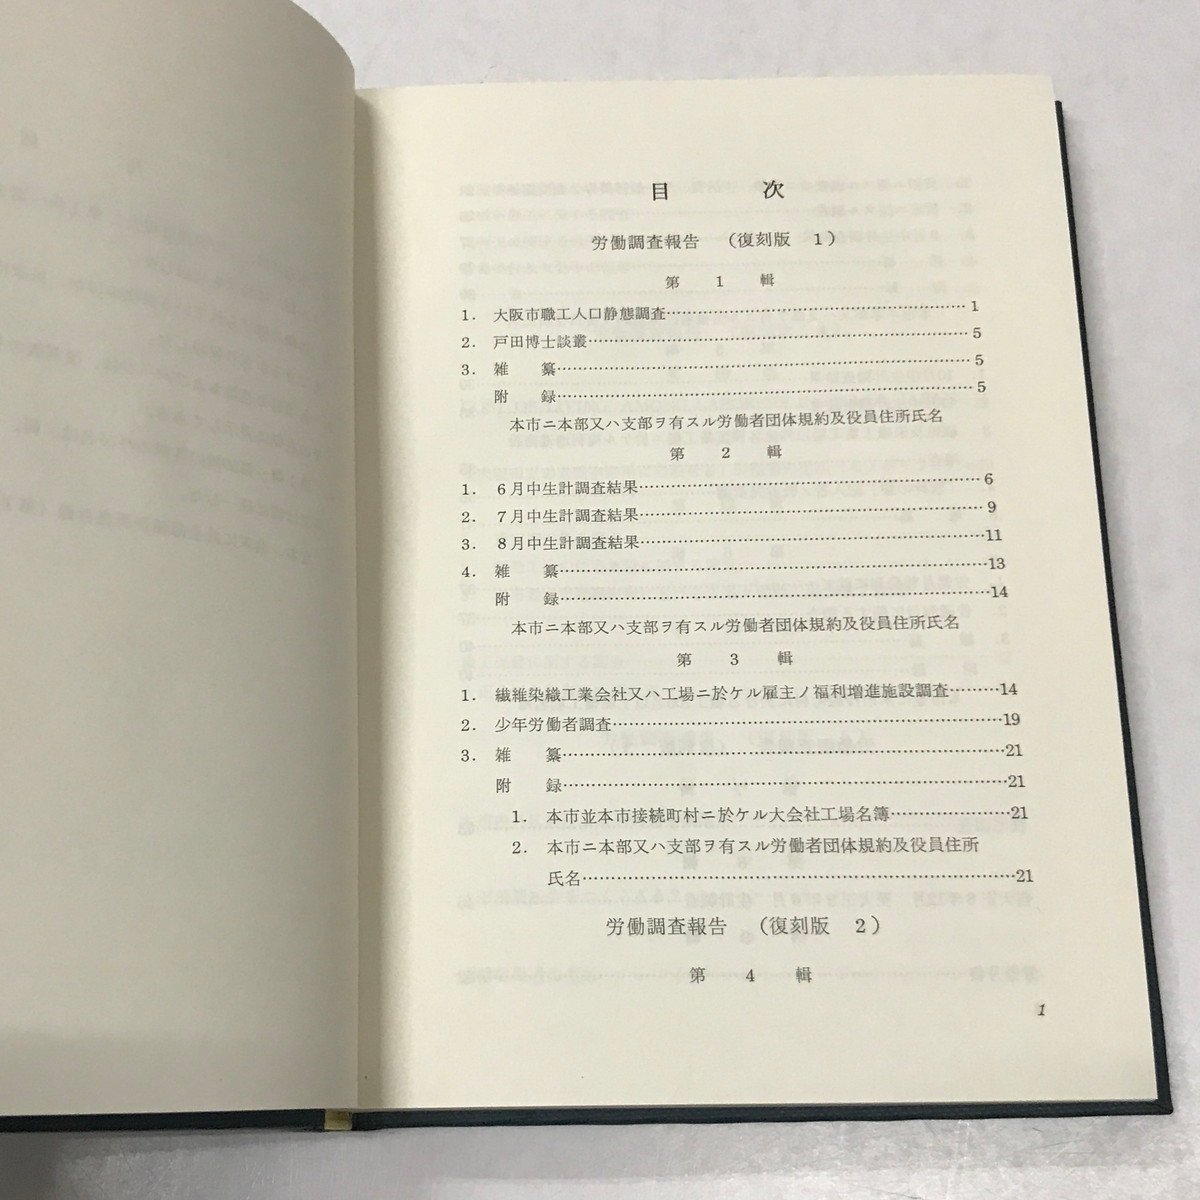 目 次
労働調査報告 (復刻版 1)
第 1 輯
1. 大阪市職工人口静態調査……………………………………1
2. 戸田博士談叢……………………………………5
3. 雑 纂……………………………………5
附 録……………………………………5
本市ニ本部又ハ支部ヲ有スル労働者団体規約及役員住所氏名
第 2 輯
1. 6月中生計調査結果……………………………………6
2. 7月中生計調査結果……………………………………9
3. 8月中生計調査結果……………………………………11
4. 雑 纂……………………………………13
附 録……………………………………14
本市ニ本部又ハ支部ヲ有スル労働者団体規約及役員住所氏名
第 3 輯
1. 繊維染織工業会社又ハ工場ニ於ケル雇主ノ福利増進施設調査………14
2. 少年労働者調査……………………………………19
3. 雑 纂……………………………………21
附 録……………………………………21
1. 本市並本市接続町村ニ於ケル大会社工場名簿……………21
2. 本市ニ本部又ハ支部ヲ有スル労働者団体規約及役員住所
氏名……………………………………21
労働調査報告 (復刻版 2)
第 4 輯
1